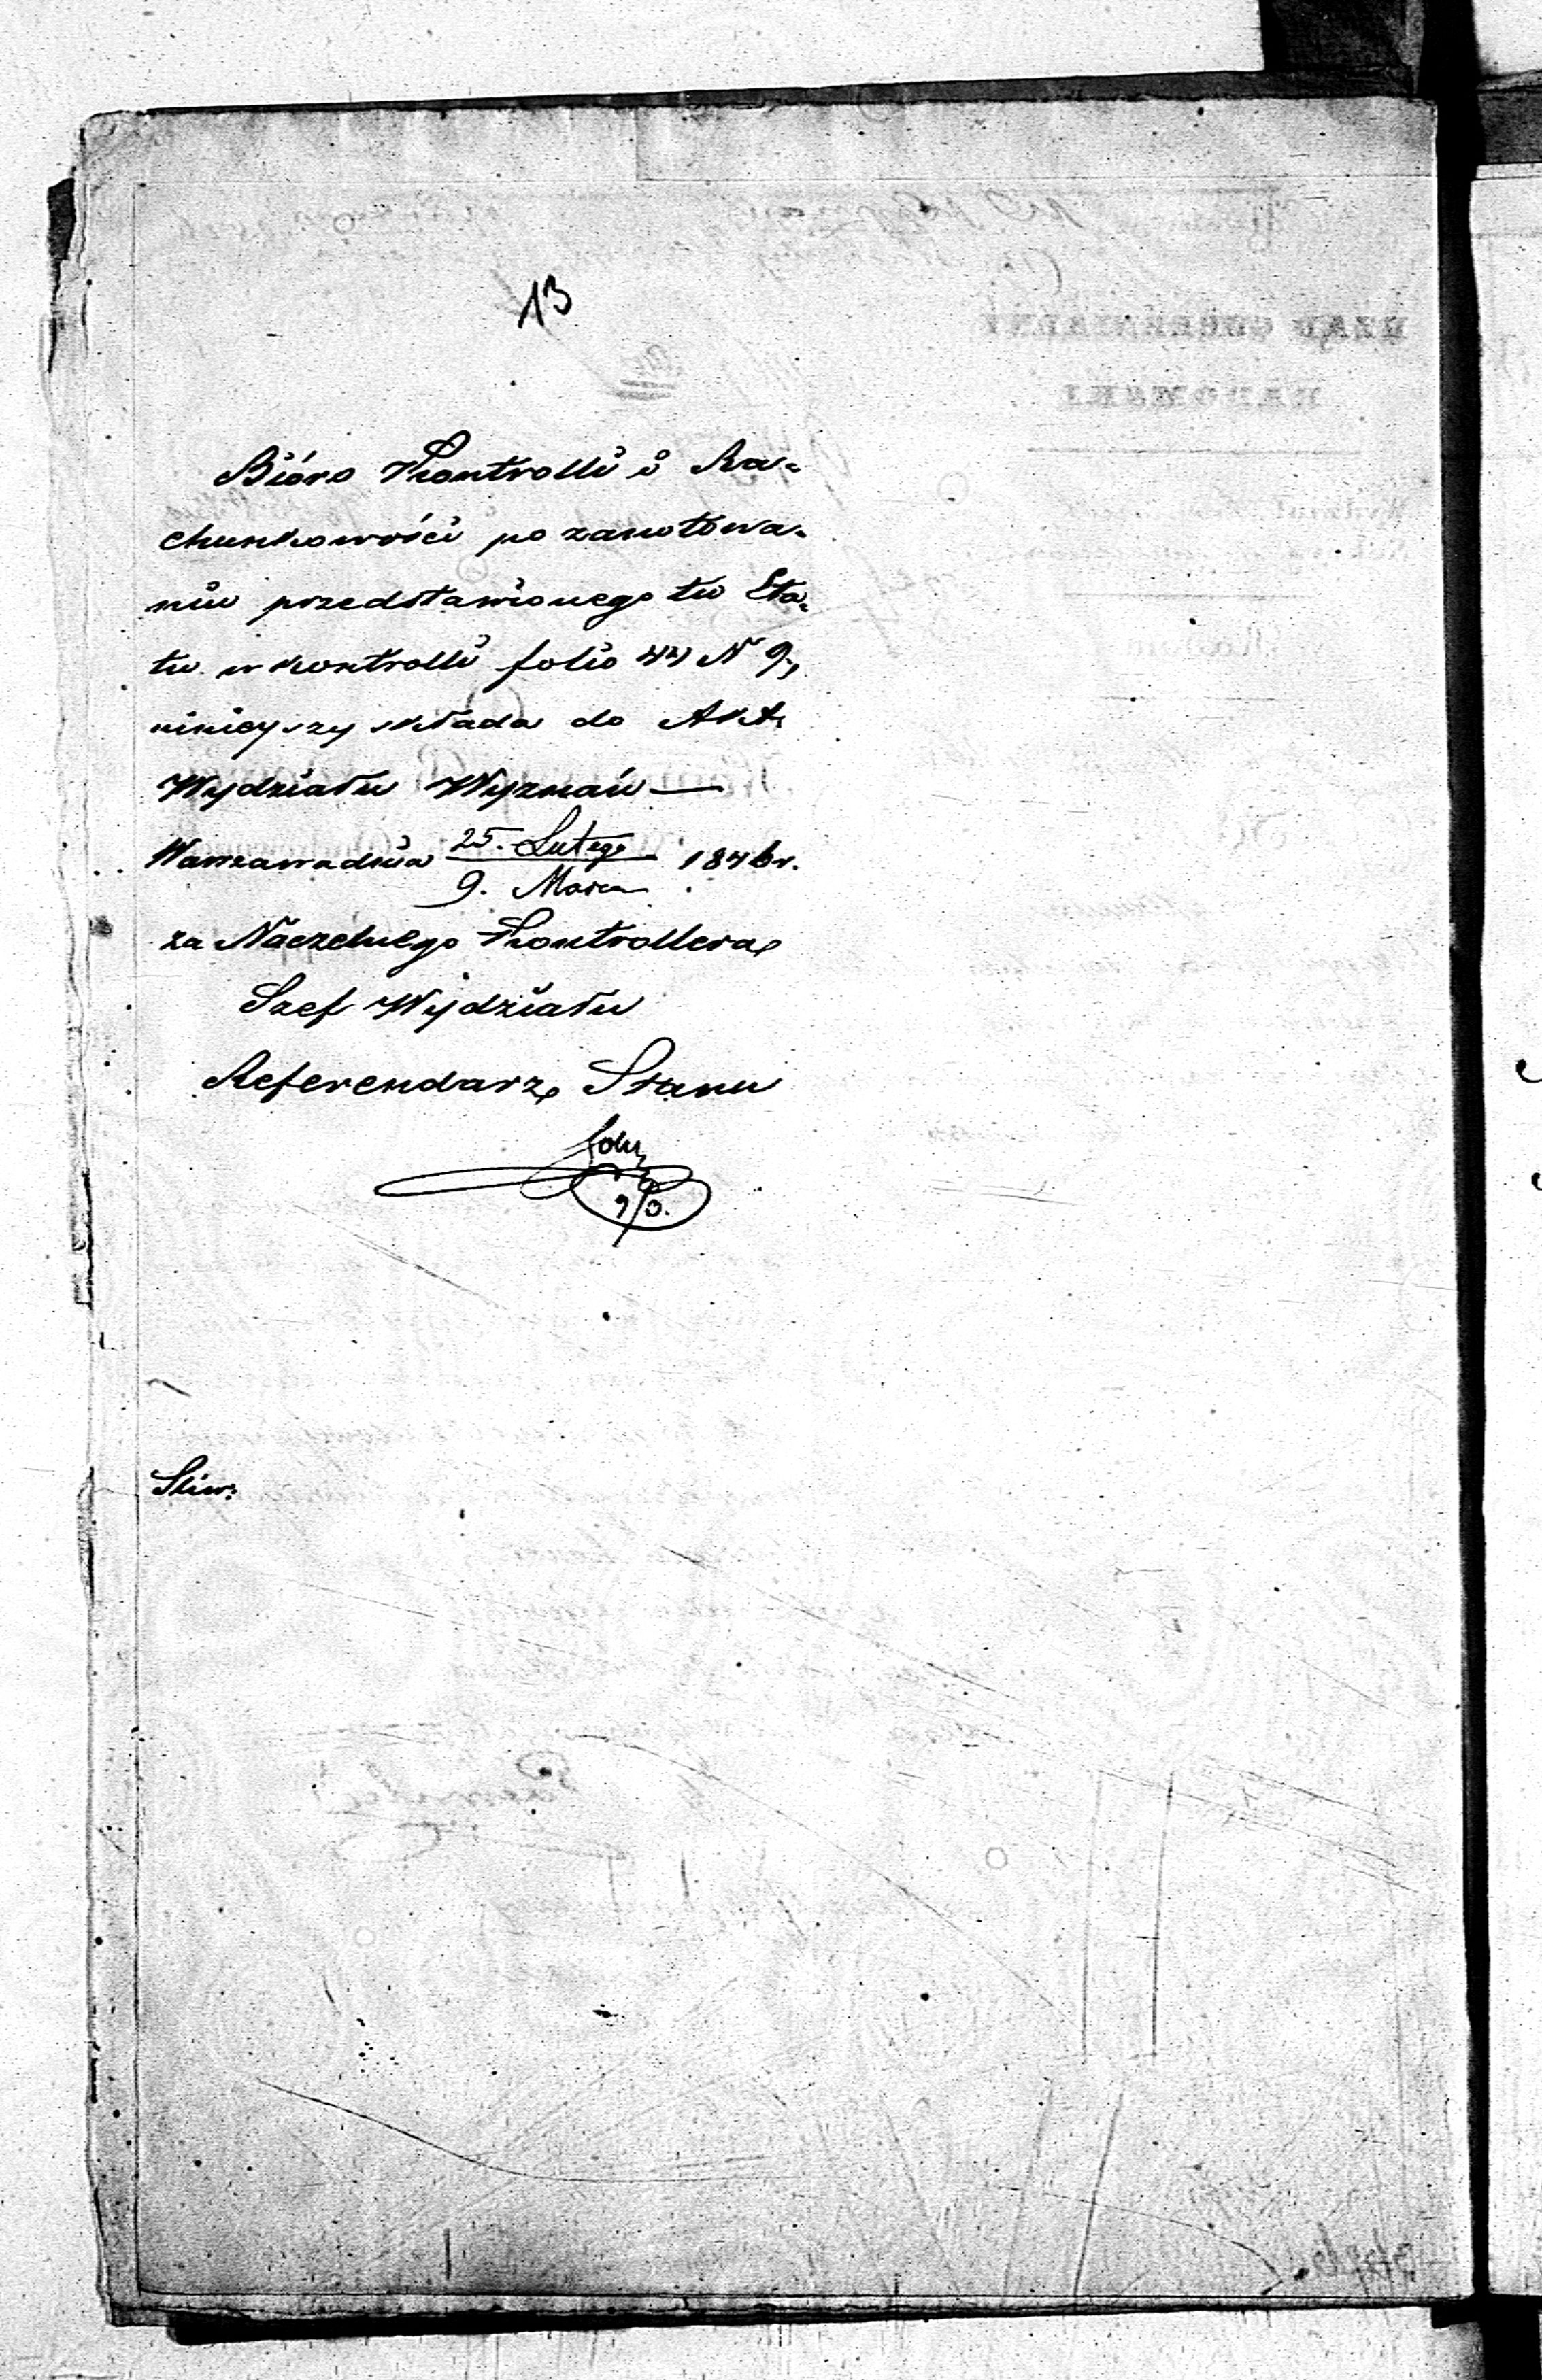 13
Bióro Kontrolli i Ra-
chunkowości po zanotowa-
niu przedstawionego tu Eta-
tu w kontrolli folio 44 N 9,
niniejszy składa do Akt
Wydziału Wyznań —
Warszawa dnia 25. Lutego / 9. Marca 1846 r.
za Naczelnego Kontrollera,
Szef Wydziału
Referendarz Stanu
9/3.
Sliw: